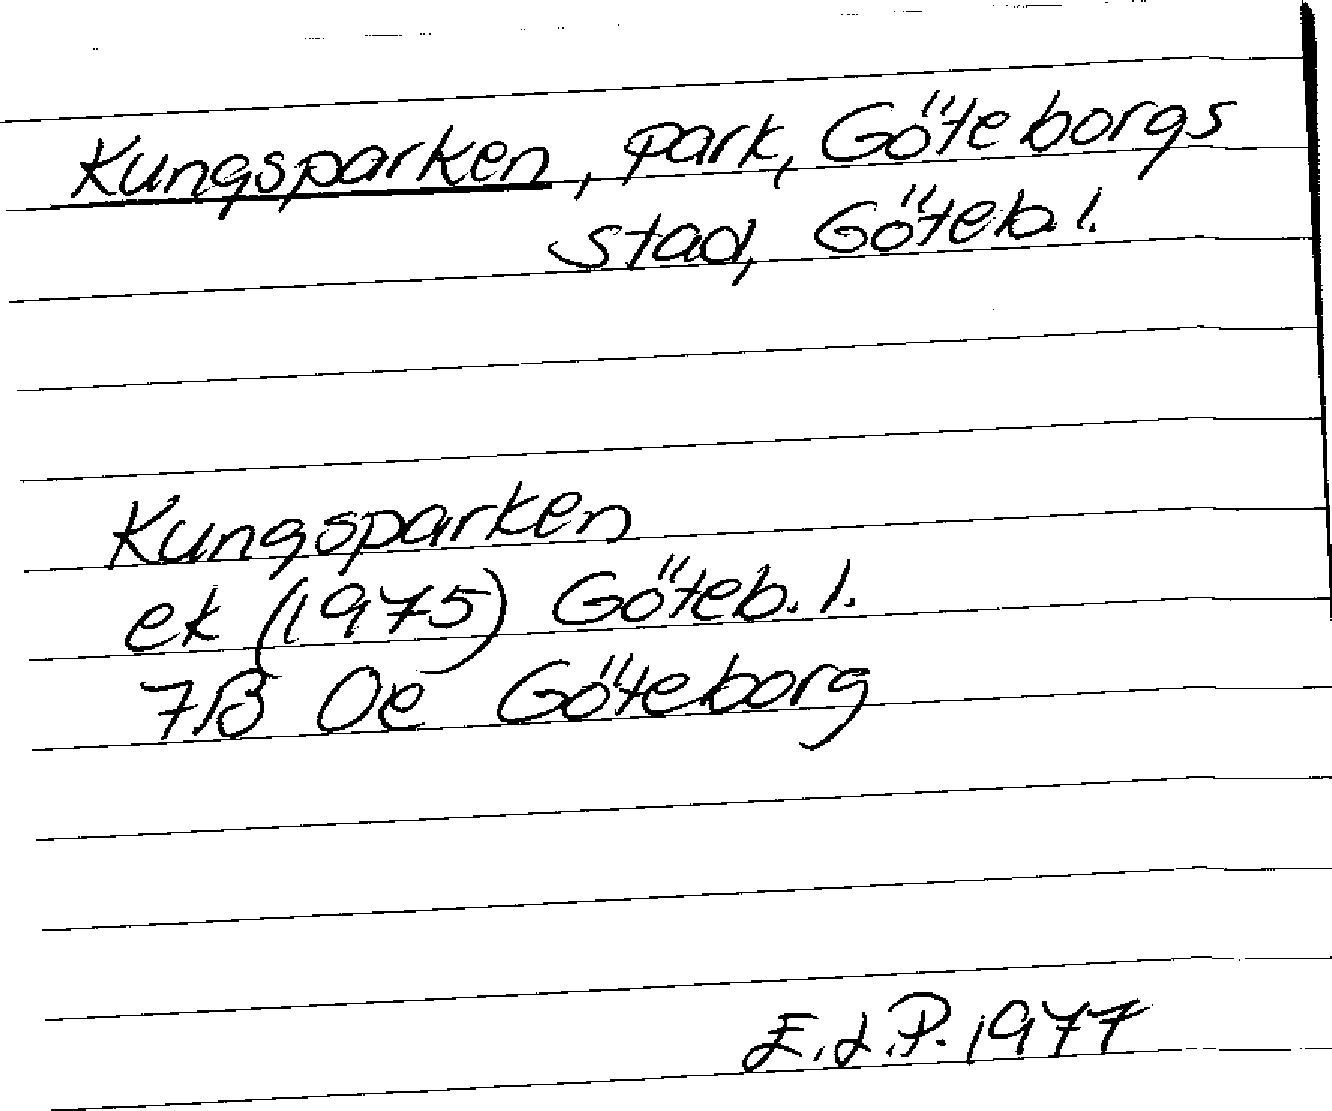 Kungsparken, park, Göteborgs
stad, Göteb. l.
Kungsparken
ek (1975) Göteb. l.
7B 0e Göteborg
E.L.P. 1977